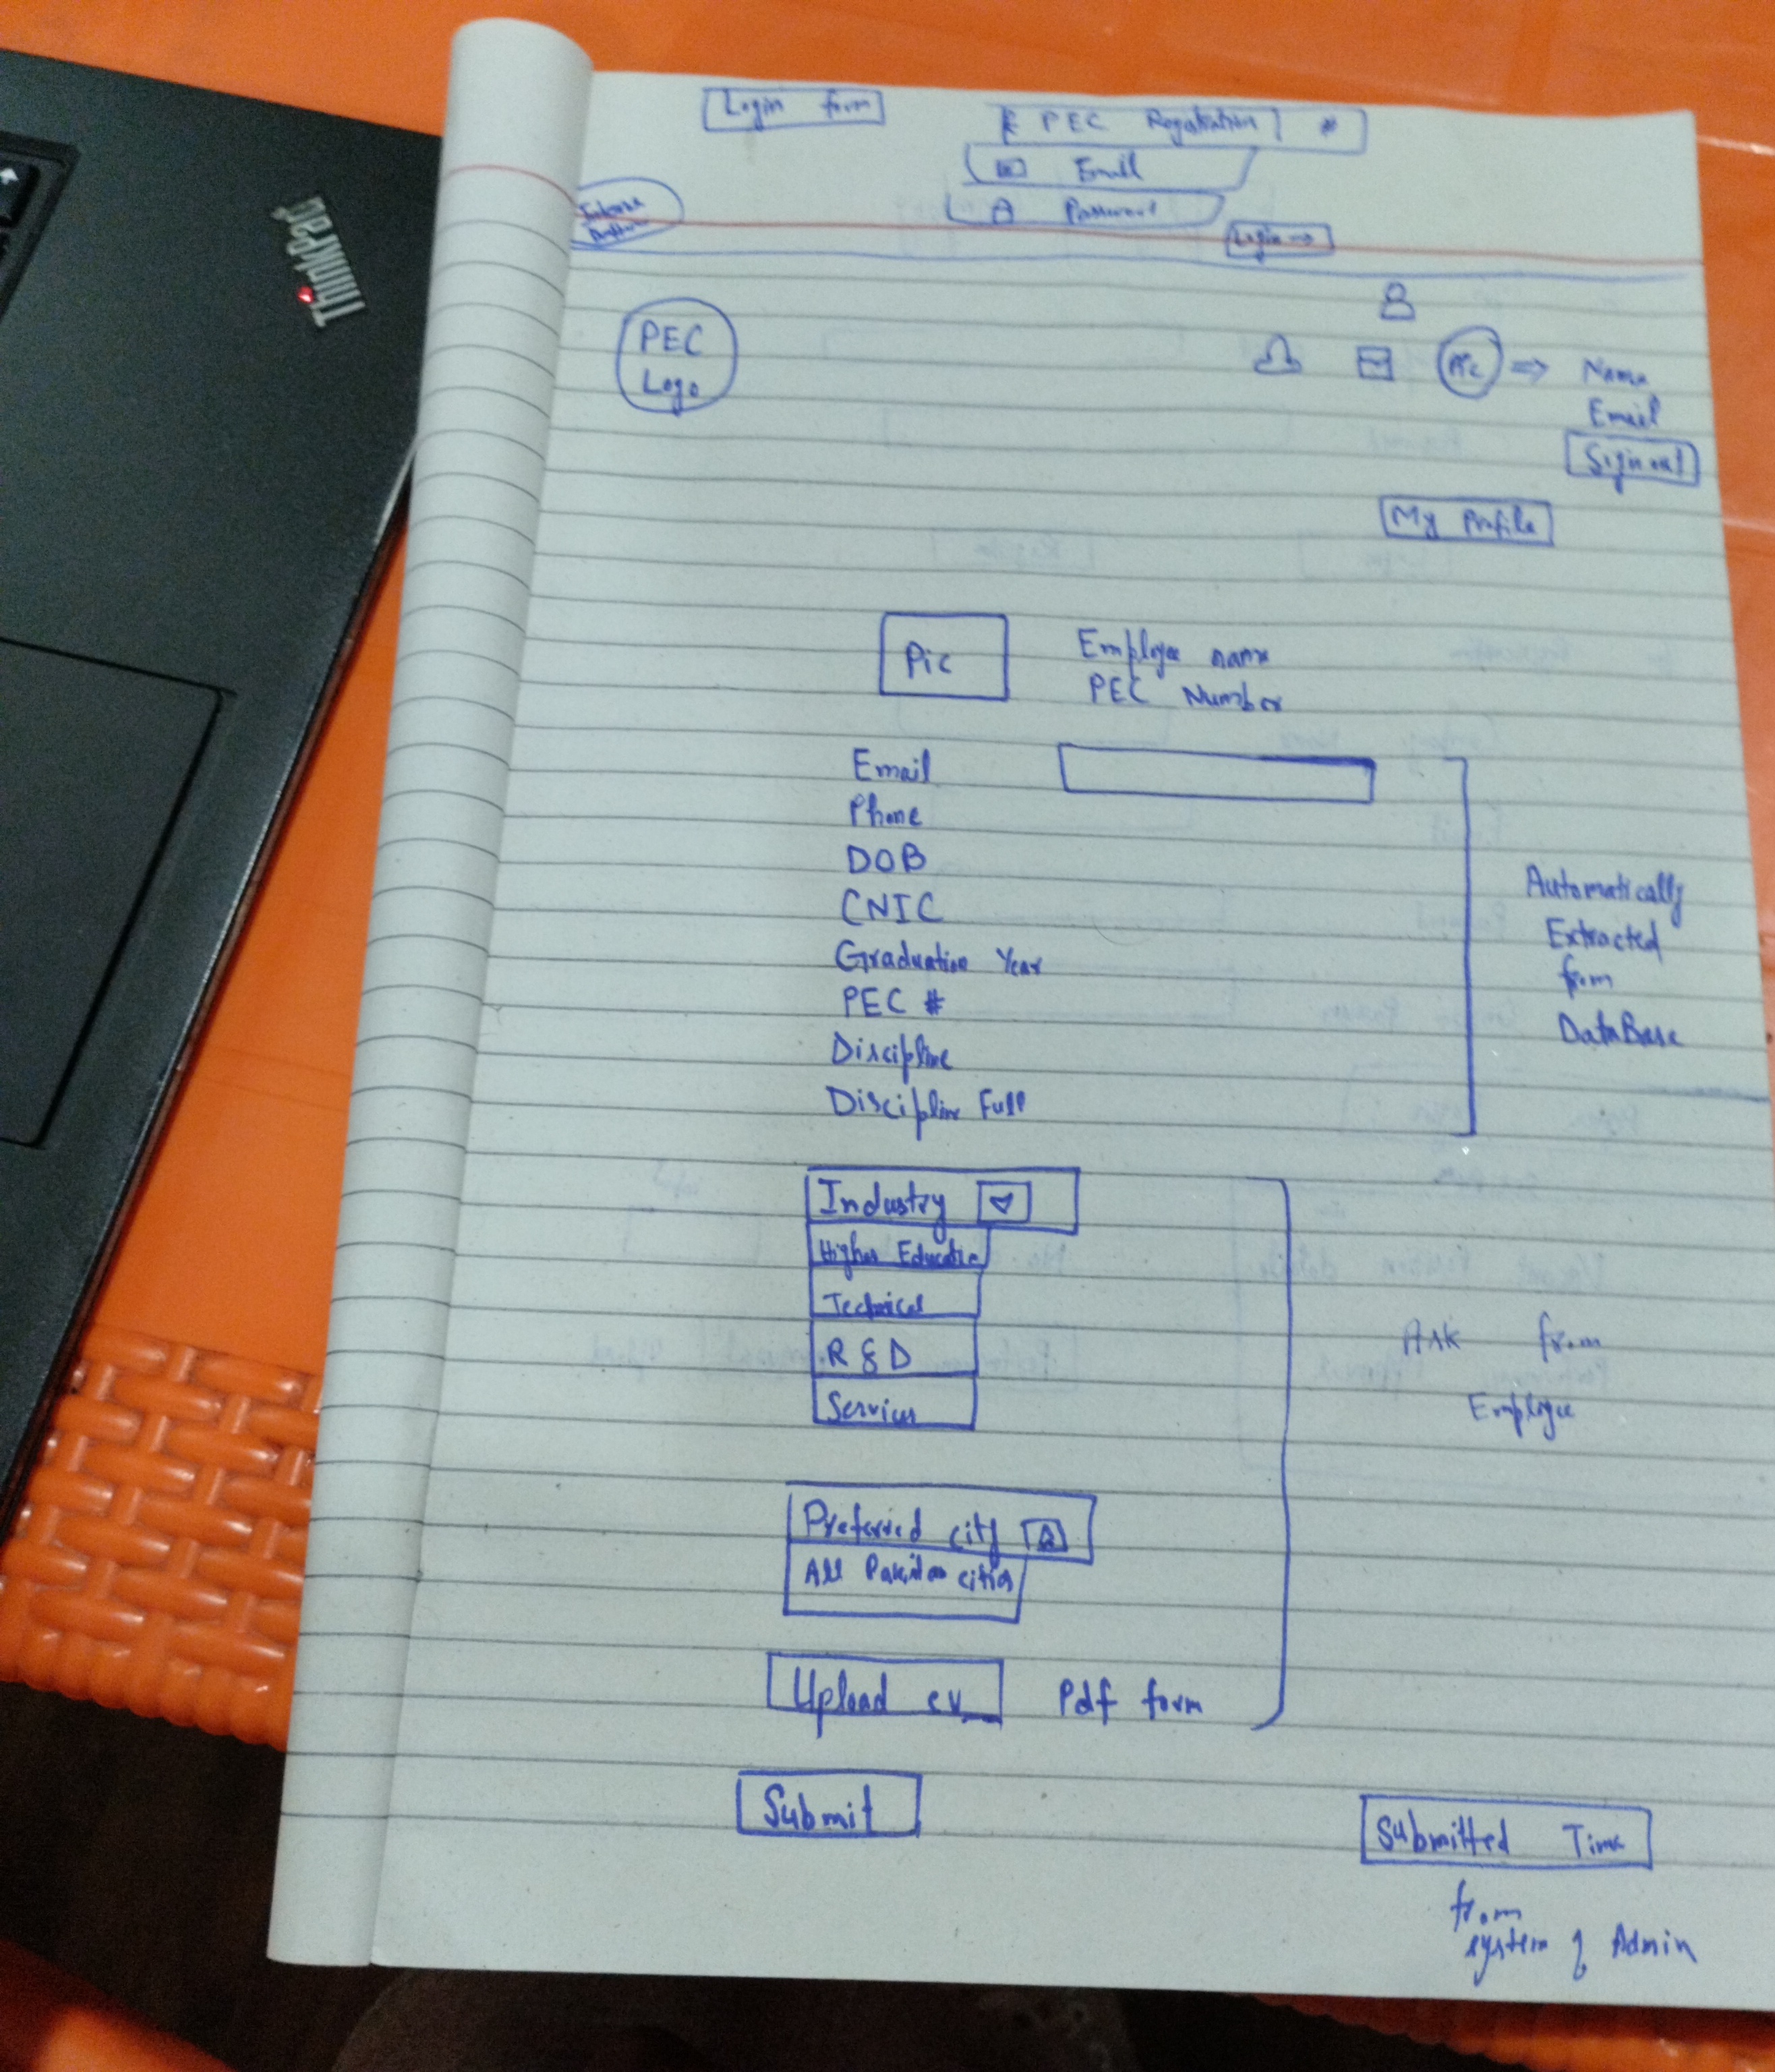 Login form
PEC Registration #
Email
Password
Login →
PEC
Logo
Pic ⇒ Name
Email
Sign out
My Profile
ThinkPad
Pic
Employee name
PEC Number
Email
Phone
DOB
CNIC
Graduation Year
PEC #
Discipline
Discipline Full
Automatically
Extracted
from
DataBase
Industry
Higher Education
Technical
R & D
Services
Ask from
Employee
Preferred city
All Pakistan cities
Upload cv Pdf form
Submit
Submitted Time
from
system of Admin